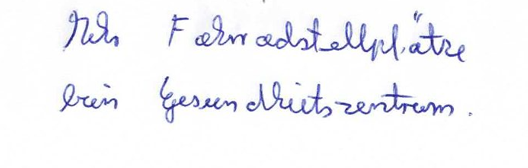 Mehr Fahrradstellplätze
beim Gesundheitszentrum.